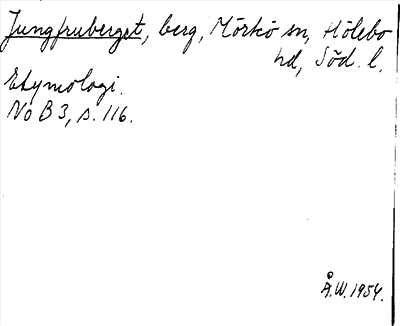 Jungfruberget, berg, Mörkö sn, Hölebo
hd, Söd. l.
Etymologi.
NoB 3, s. 116.
Å.W. 1954.